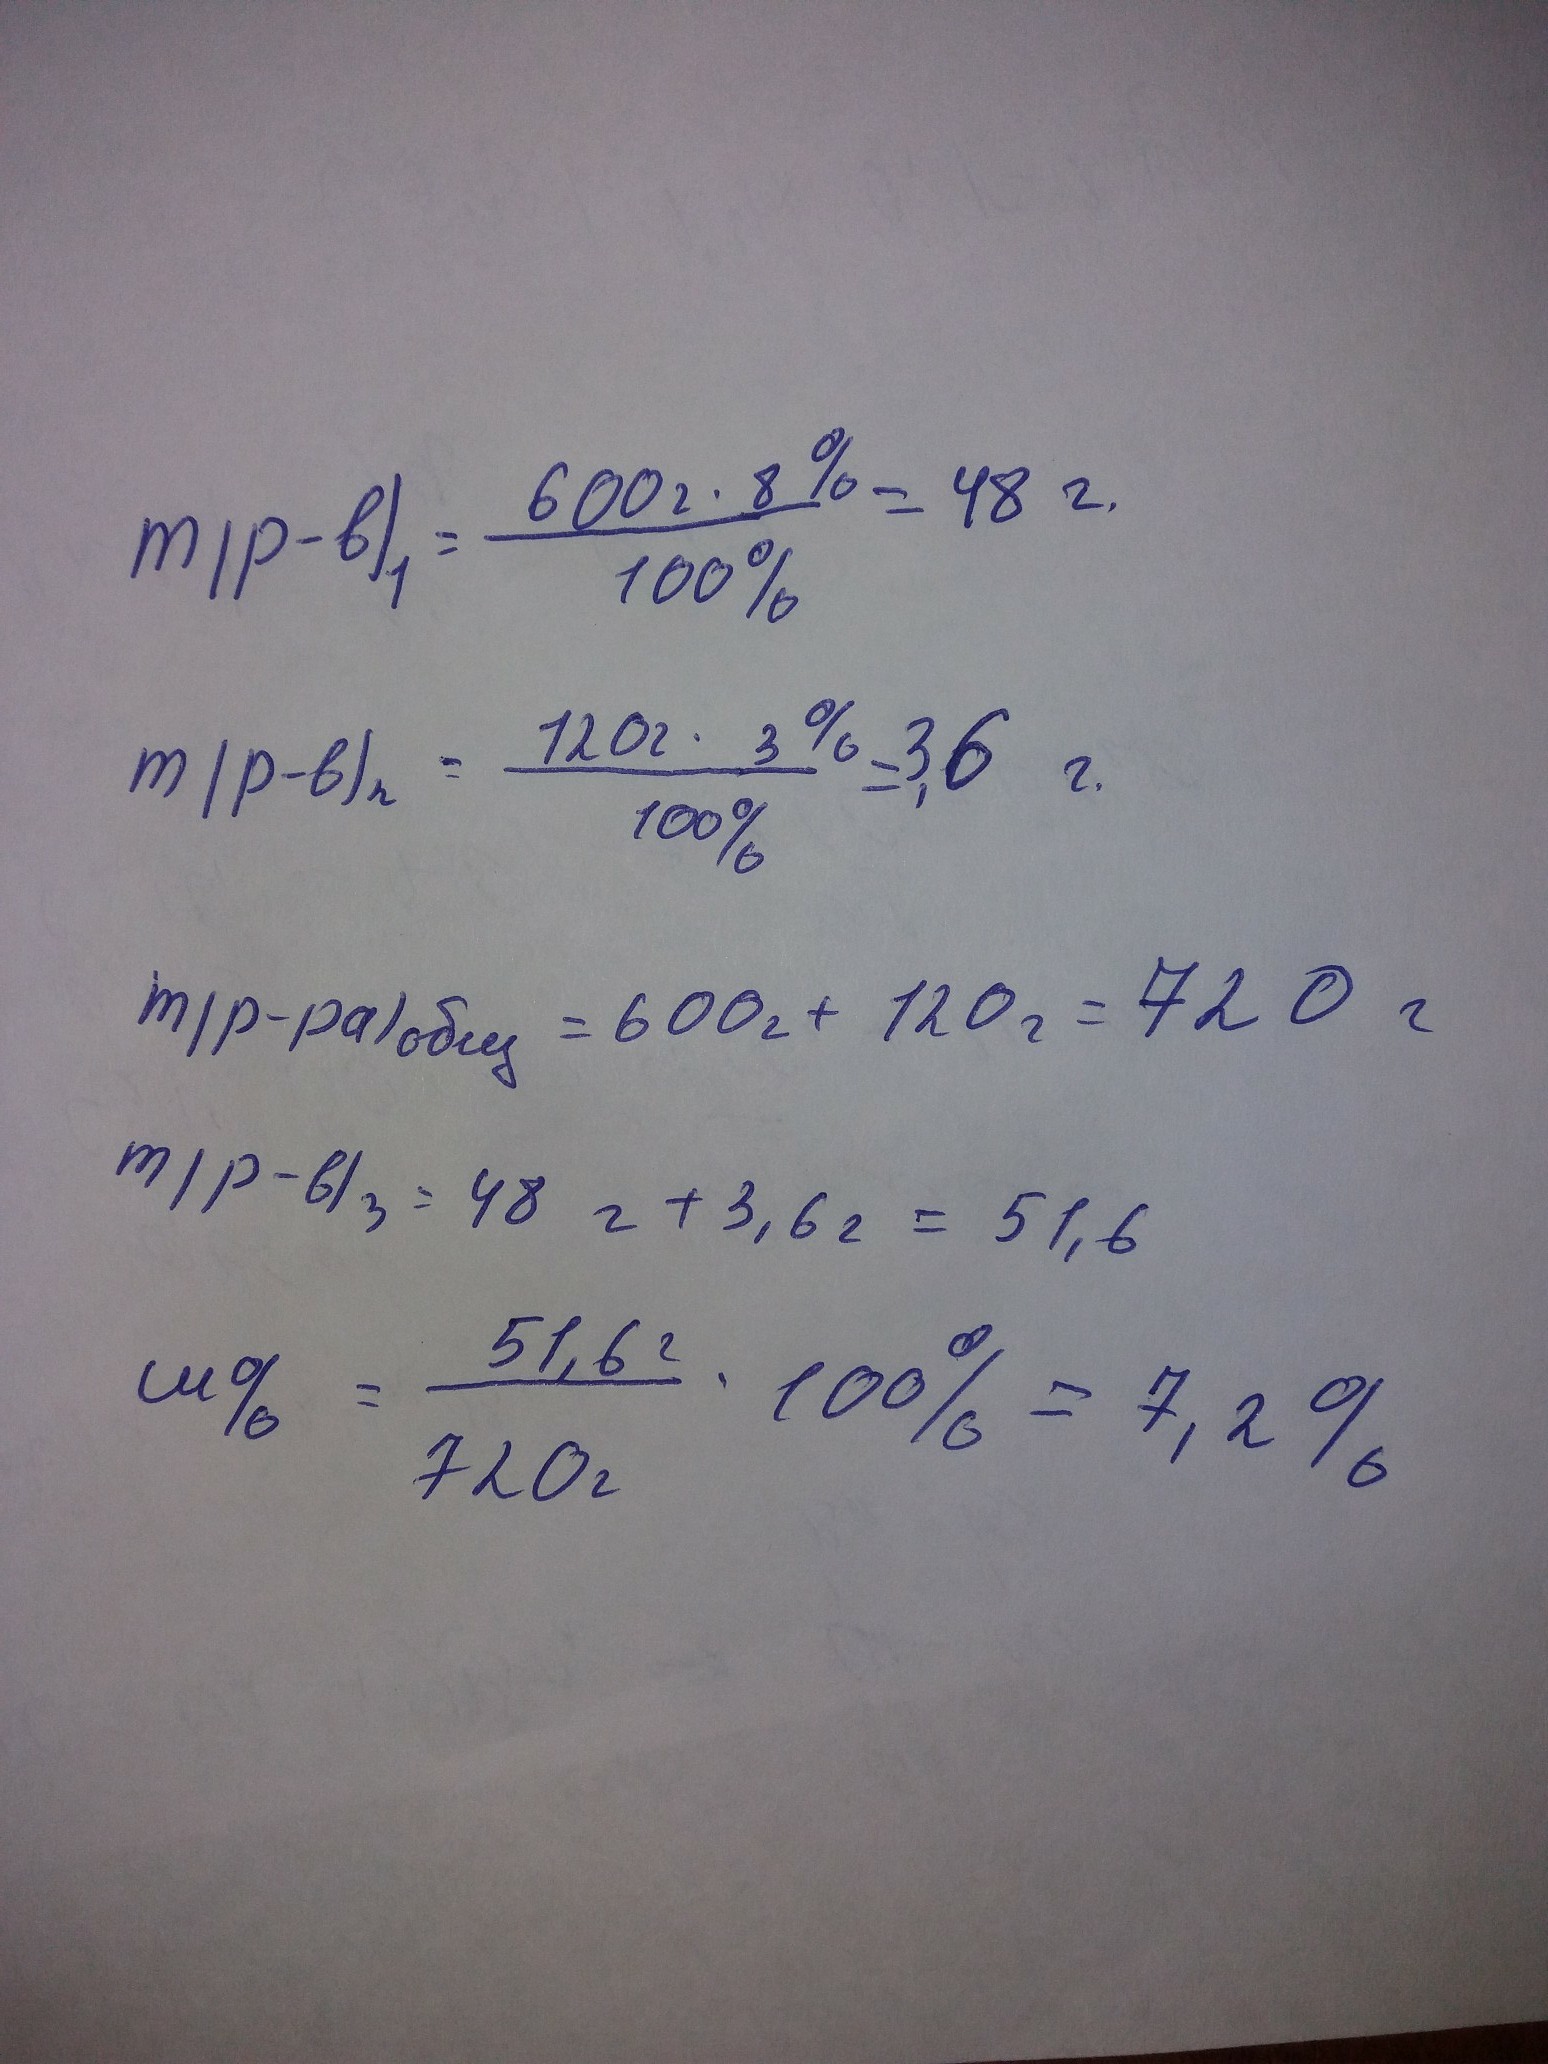 m(р-в)₁ = 600г · 8% / 100% = 48 г.
m(р-в)₂ = 120г · 3% / 100% = 3,6 г.
m(р-ра)общ = 600г + 120г = 720 г
m(р-в)₃ = 48 г + 3,6г = 51,6
ω% = 51,6г / 720г · 100% = 7,2%